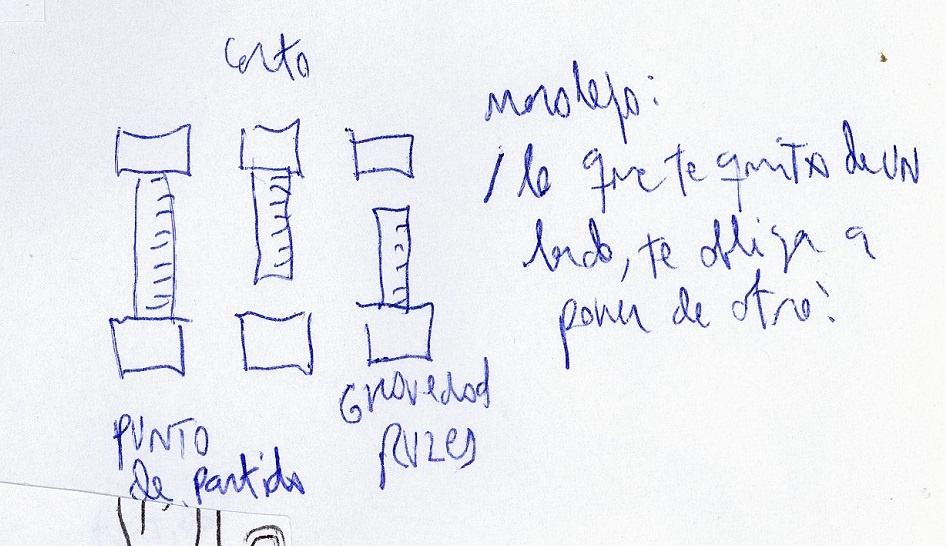 corto
moraleja:
lo que te quita de UN
lado, te obliga a
poner de otro!
Gravedad
PUNTO
de partida